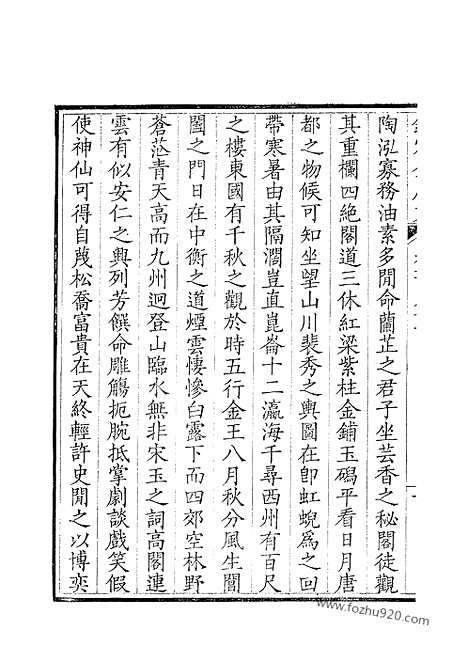 陶泓寡務油素多閒命蘭芷之君子坐芸香之秘閣徒觀
其重欄四絶閣道三休紅梁紫柱金鋪玉磶平看日月唐
都之物候可知坐望山川裴秀之輿圖在即虹蜺爲之回
帶寒暑由其隔濶豈直崑崙十二瀛海千尋西州有百尺
之樓東國有千秋之觀於時五行金王八月秋分風生閶
闔之門日在中衡之道煙雲悽慘白露下而四郊空林野
蒼茫青天高而九州迥登山臨水無非宋玉之詞高閣連
雲有似安仁之興列芳饌命雕觴扼腕抵掌劇談戲笑假
使神仙可得自蔑松喬富貴在天終輕許史聞之以博奕
www.fozhu920.com